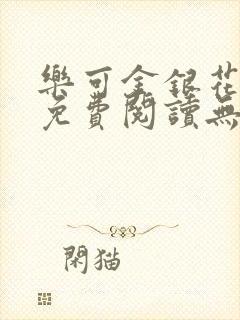 樂可金銀花
免費閱讀無
閑猫